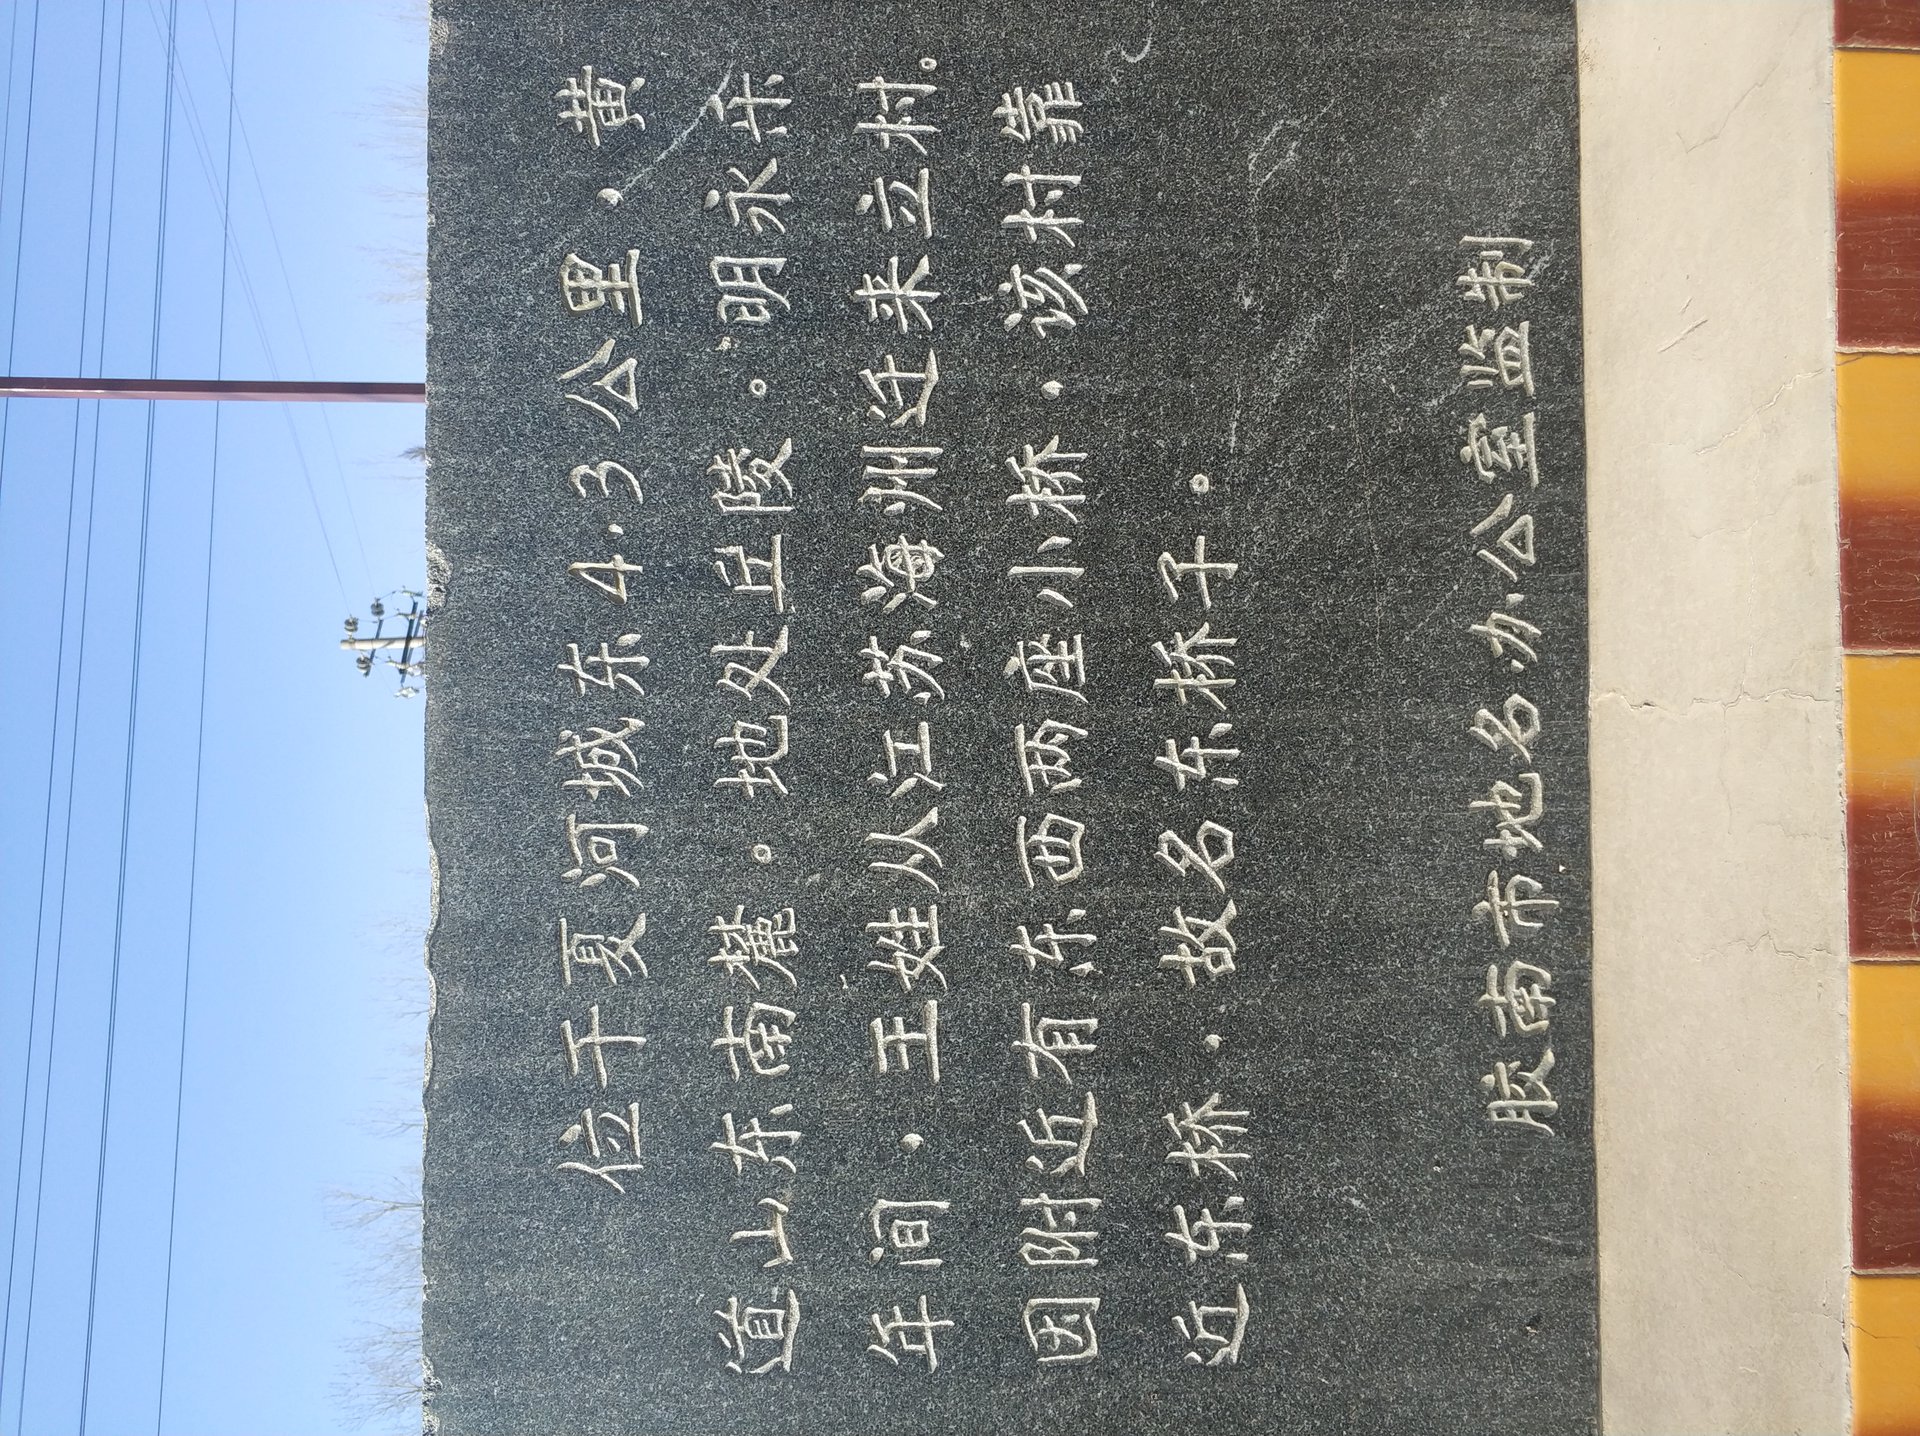 位于夏河城东4.3公里，黄
道山东南麓。地处丘陵。明永乐
年间，王姓从江苏海州迁来立村。
因附近有东西两座小桥，该村靠
近东桥，故名东桥子。
胶南市地名办公室监制